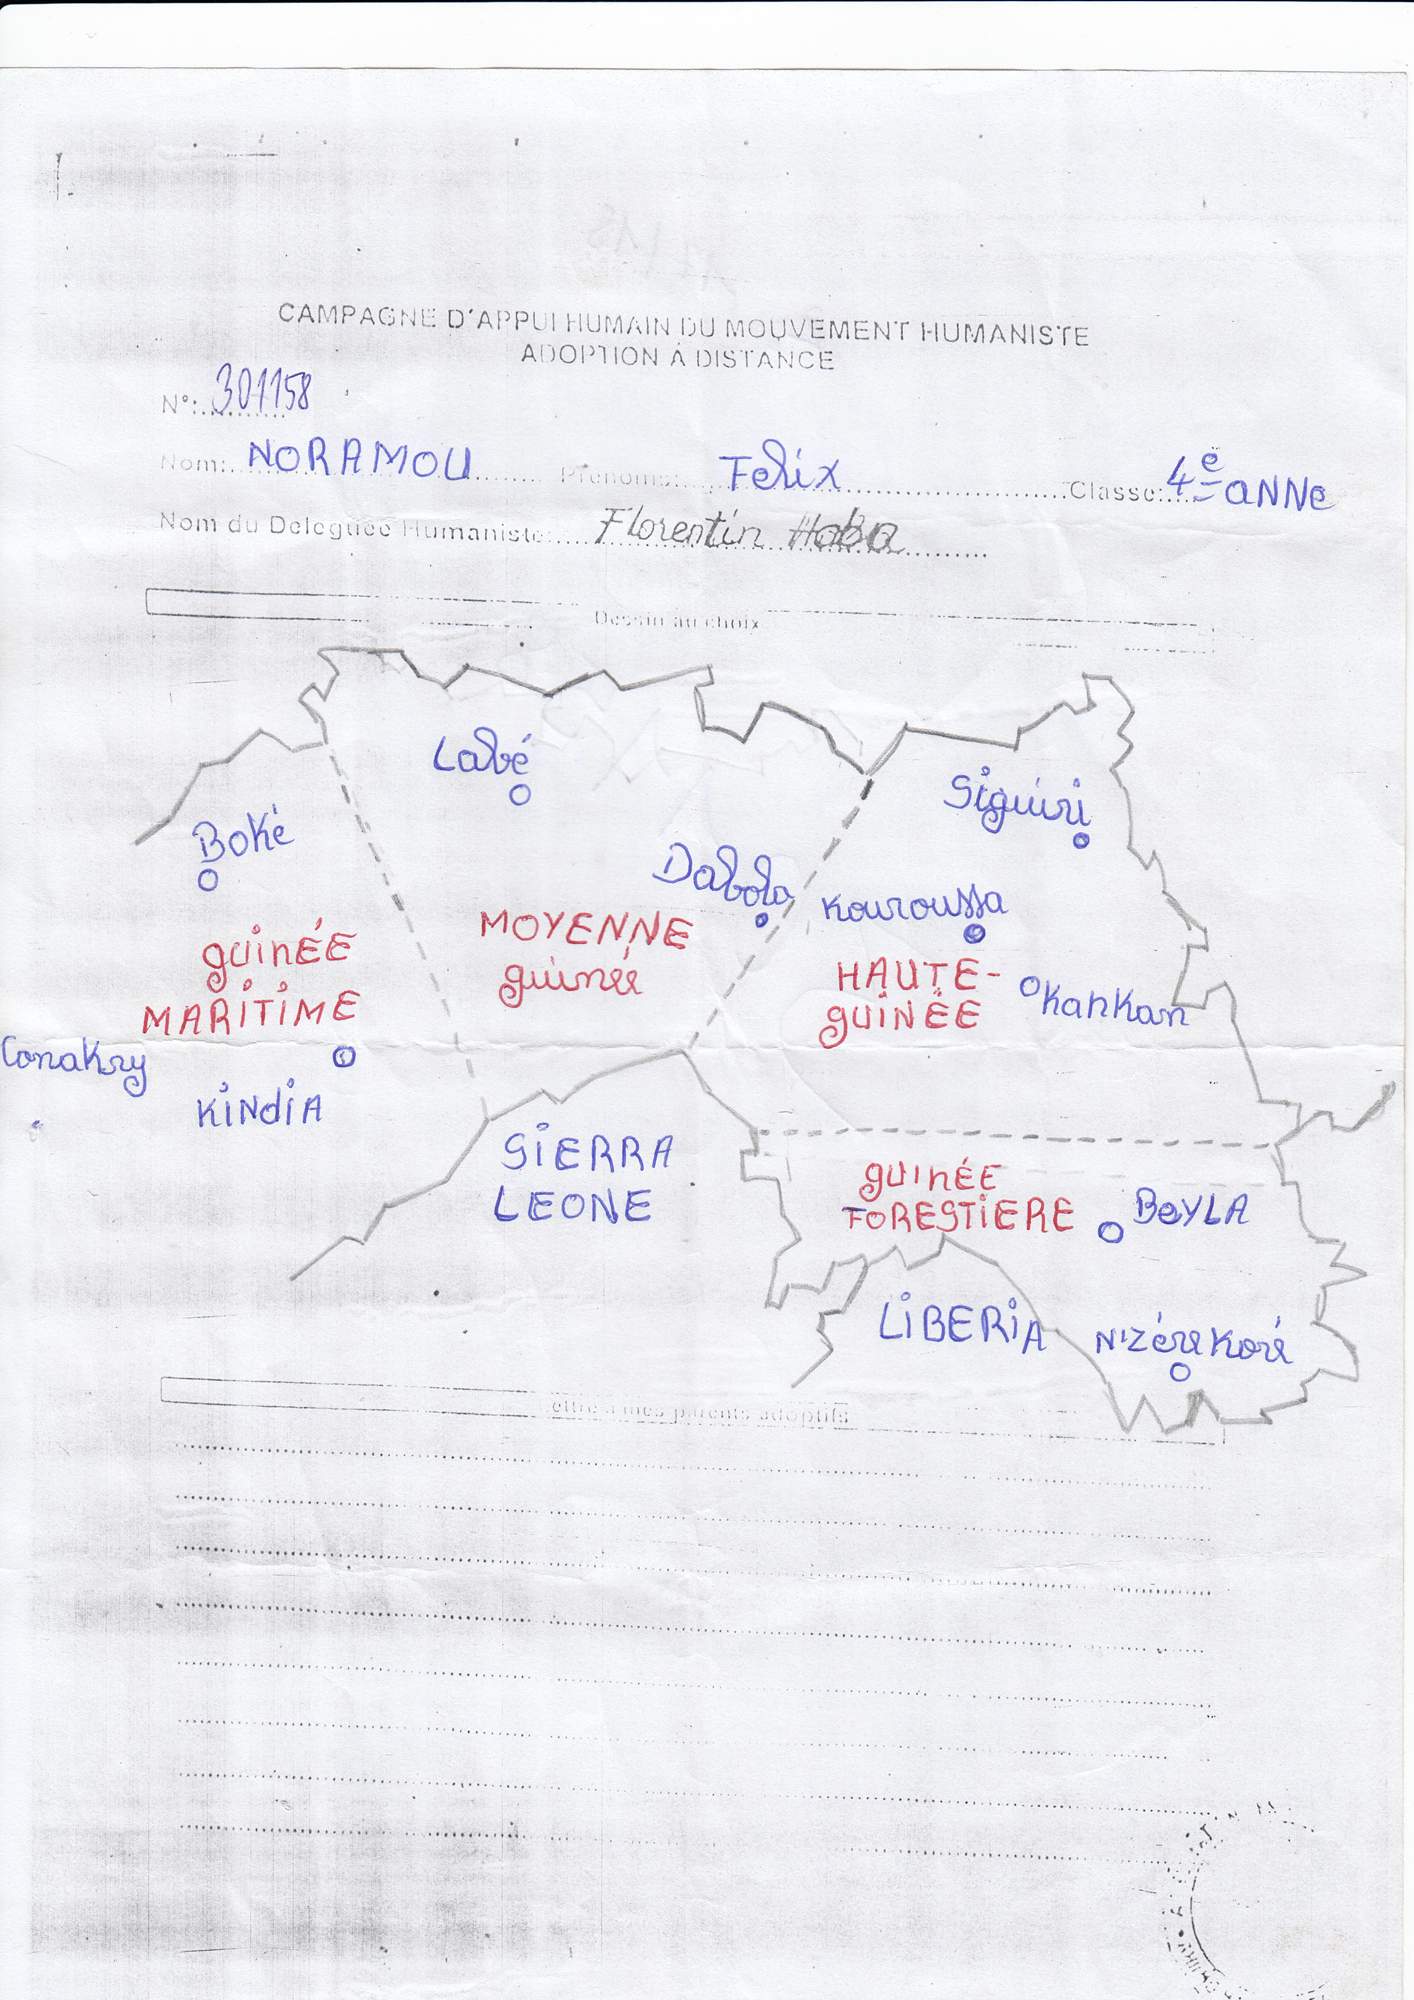 CAMPAGNE D'APPUI HUMAIN DU MOUVEMENT HUMANISTE
ADOPTION À DISTANCE
N°: 301158
Nom: NORAMOU Prénoms: Felix Classe: 4e aNNe
Nom du Deleguée Humaniste: Florentin Haba
Dessin au choix
Labé
Siguiri
Boké
Dabola
Kouroussa
MOYENNE
guinée
guinÉE
MARiTiME
HAUTE-
guiNÉE
KanKan
ConaKry
KiNdiA
SiERRA
LEONE
guinÉE
FORESTiERE
BeYLA
LiBERiA
N'ZéréKoré
ettre à mes parents adoptifs